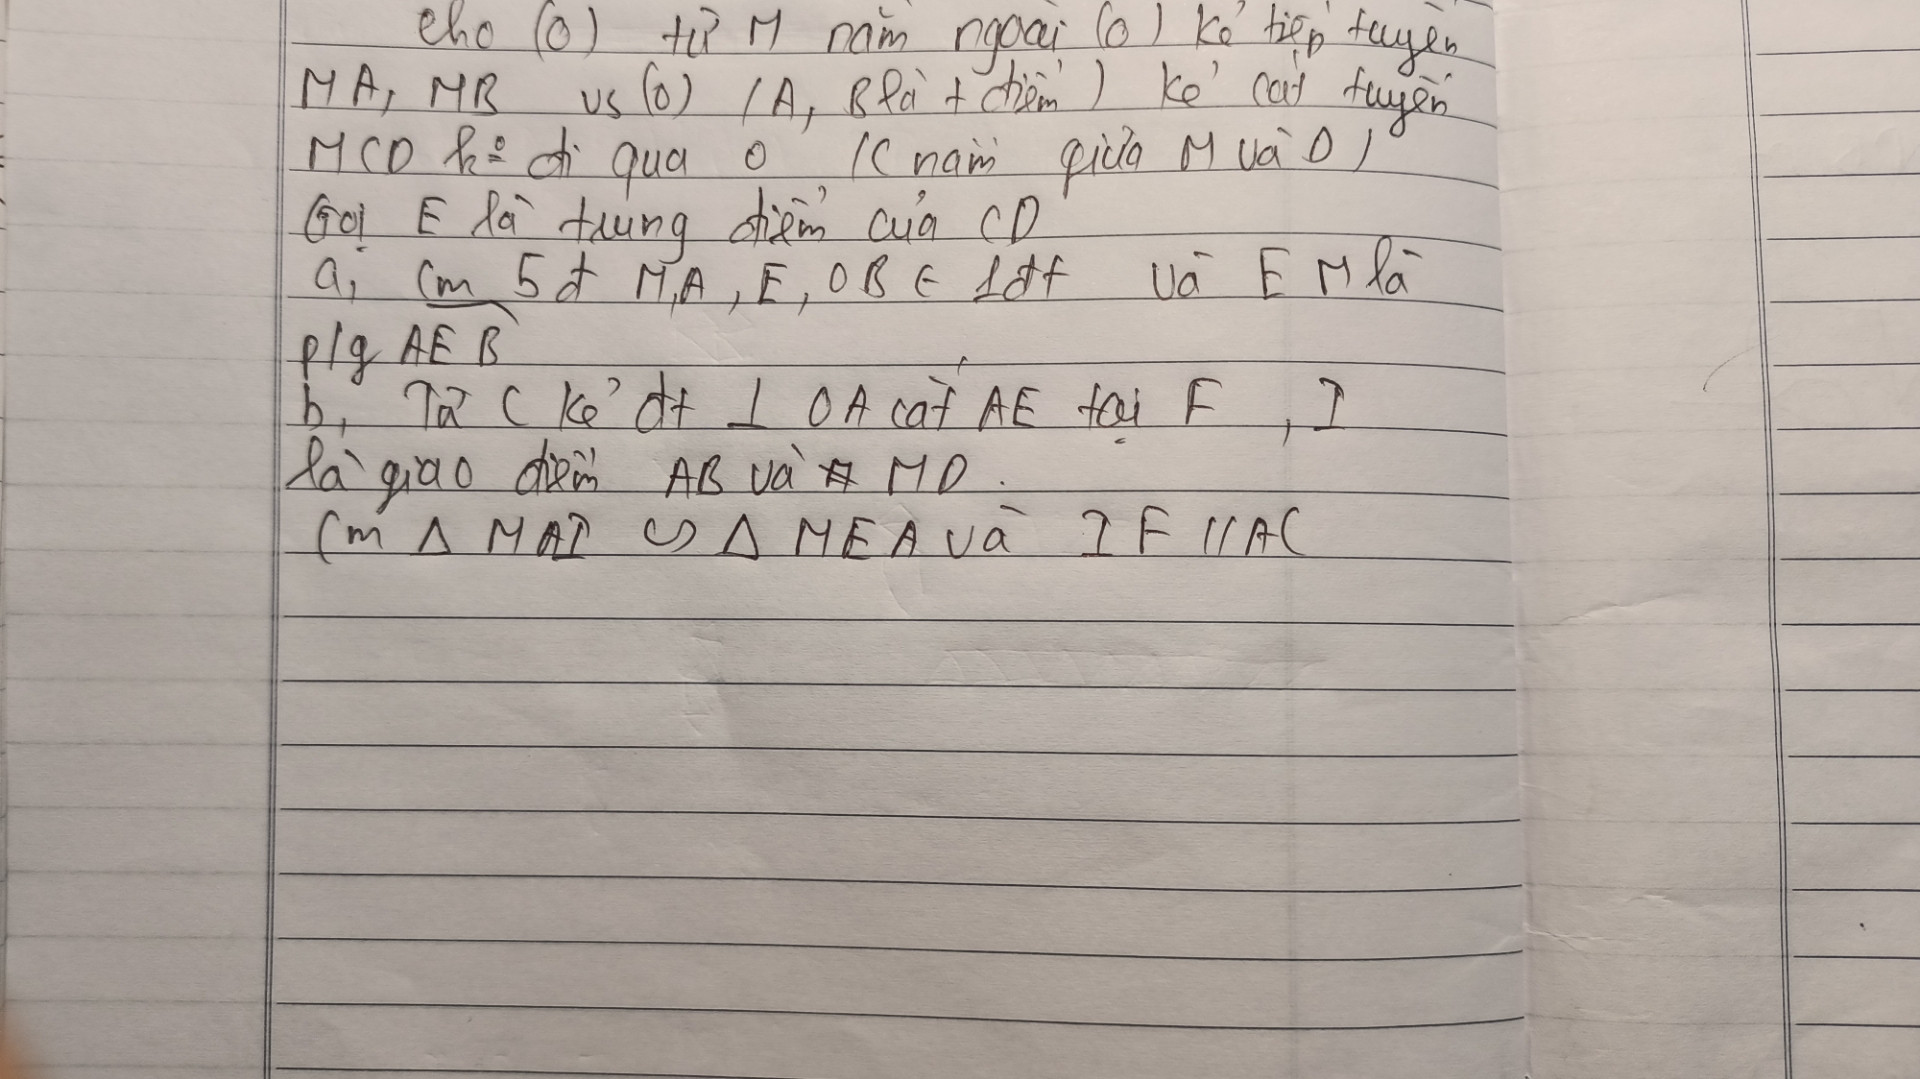 cho (O) từ M nằm ngoài (O) kẻ tiếp tuyến
MA, MB vs (O) (A, B là t điểm) kẻ cát tuyến
MCD k° đi qua O (C nằm giữa M và D)
Gọi E là trung điểm của CD
a, Cm 5 đ M, A, E, O B ∈ 1 đt và E M là
p/g AEB
b, Từ C kẻ đt ⊥ OA cắt AE tại F , I
là giao điểm AB và MD.
Cm Δ MAI ∽ Δ MEA và IF // AC